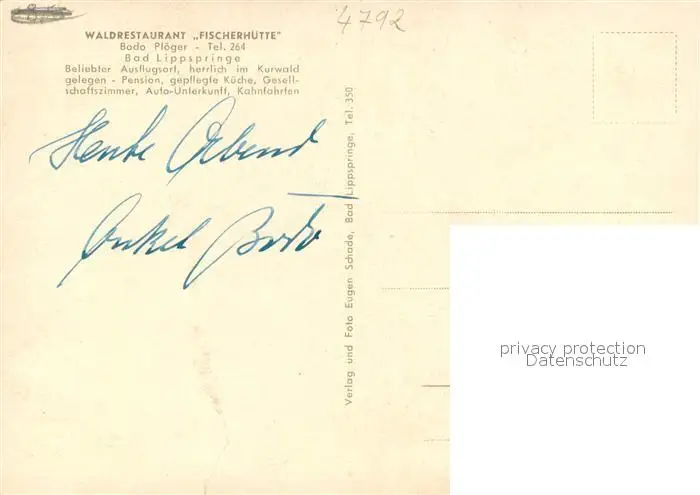 4792
WALDRESTAURANT „FISCHERHÜTTE"
Bodo Plöger - Tel. 264
Bad Lippspringe
Beliebter Ausflugsort, herrlich im Kurwald
gelegen - Pension, gepflegte Küche, Gesell-
schaftszimmer, Auto-Unterkunft, Kahnfahrten
Heute Abend
Onkel Bodo
Verlag und Foto Eugen Schade, Bad Lippspringe, Tel. 350
privacy protection
Datenschutz